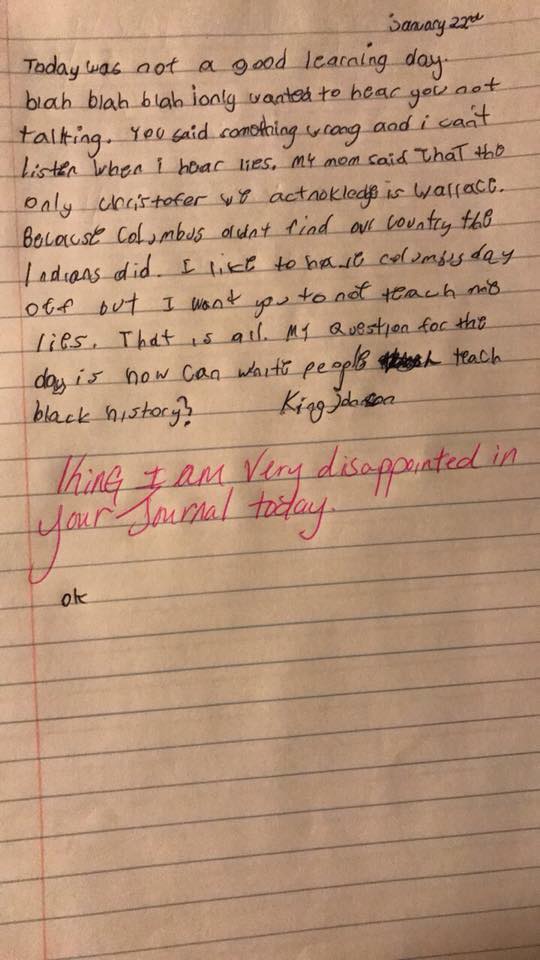 January 22nd
Today was not a good learning day.
blah blah blah i only wanted to hear you not
talking. You said something wrong and i can't
listen when i hear lies. My mom said that the
only christofer we acknokledge is Wallace.
Because Columbus didnt find our country the
Indians did. I like to have columbus day
off but I want you to not teach me
lies. That is all. My question for the
day is how can white people teach
black history? King Johnson
King I am very disappointed in
your Journal today.
ok